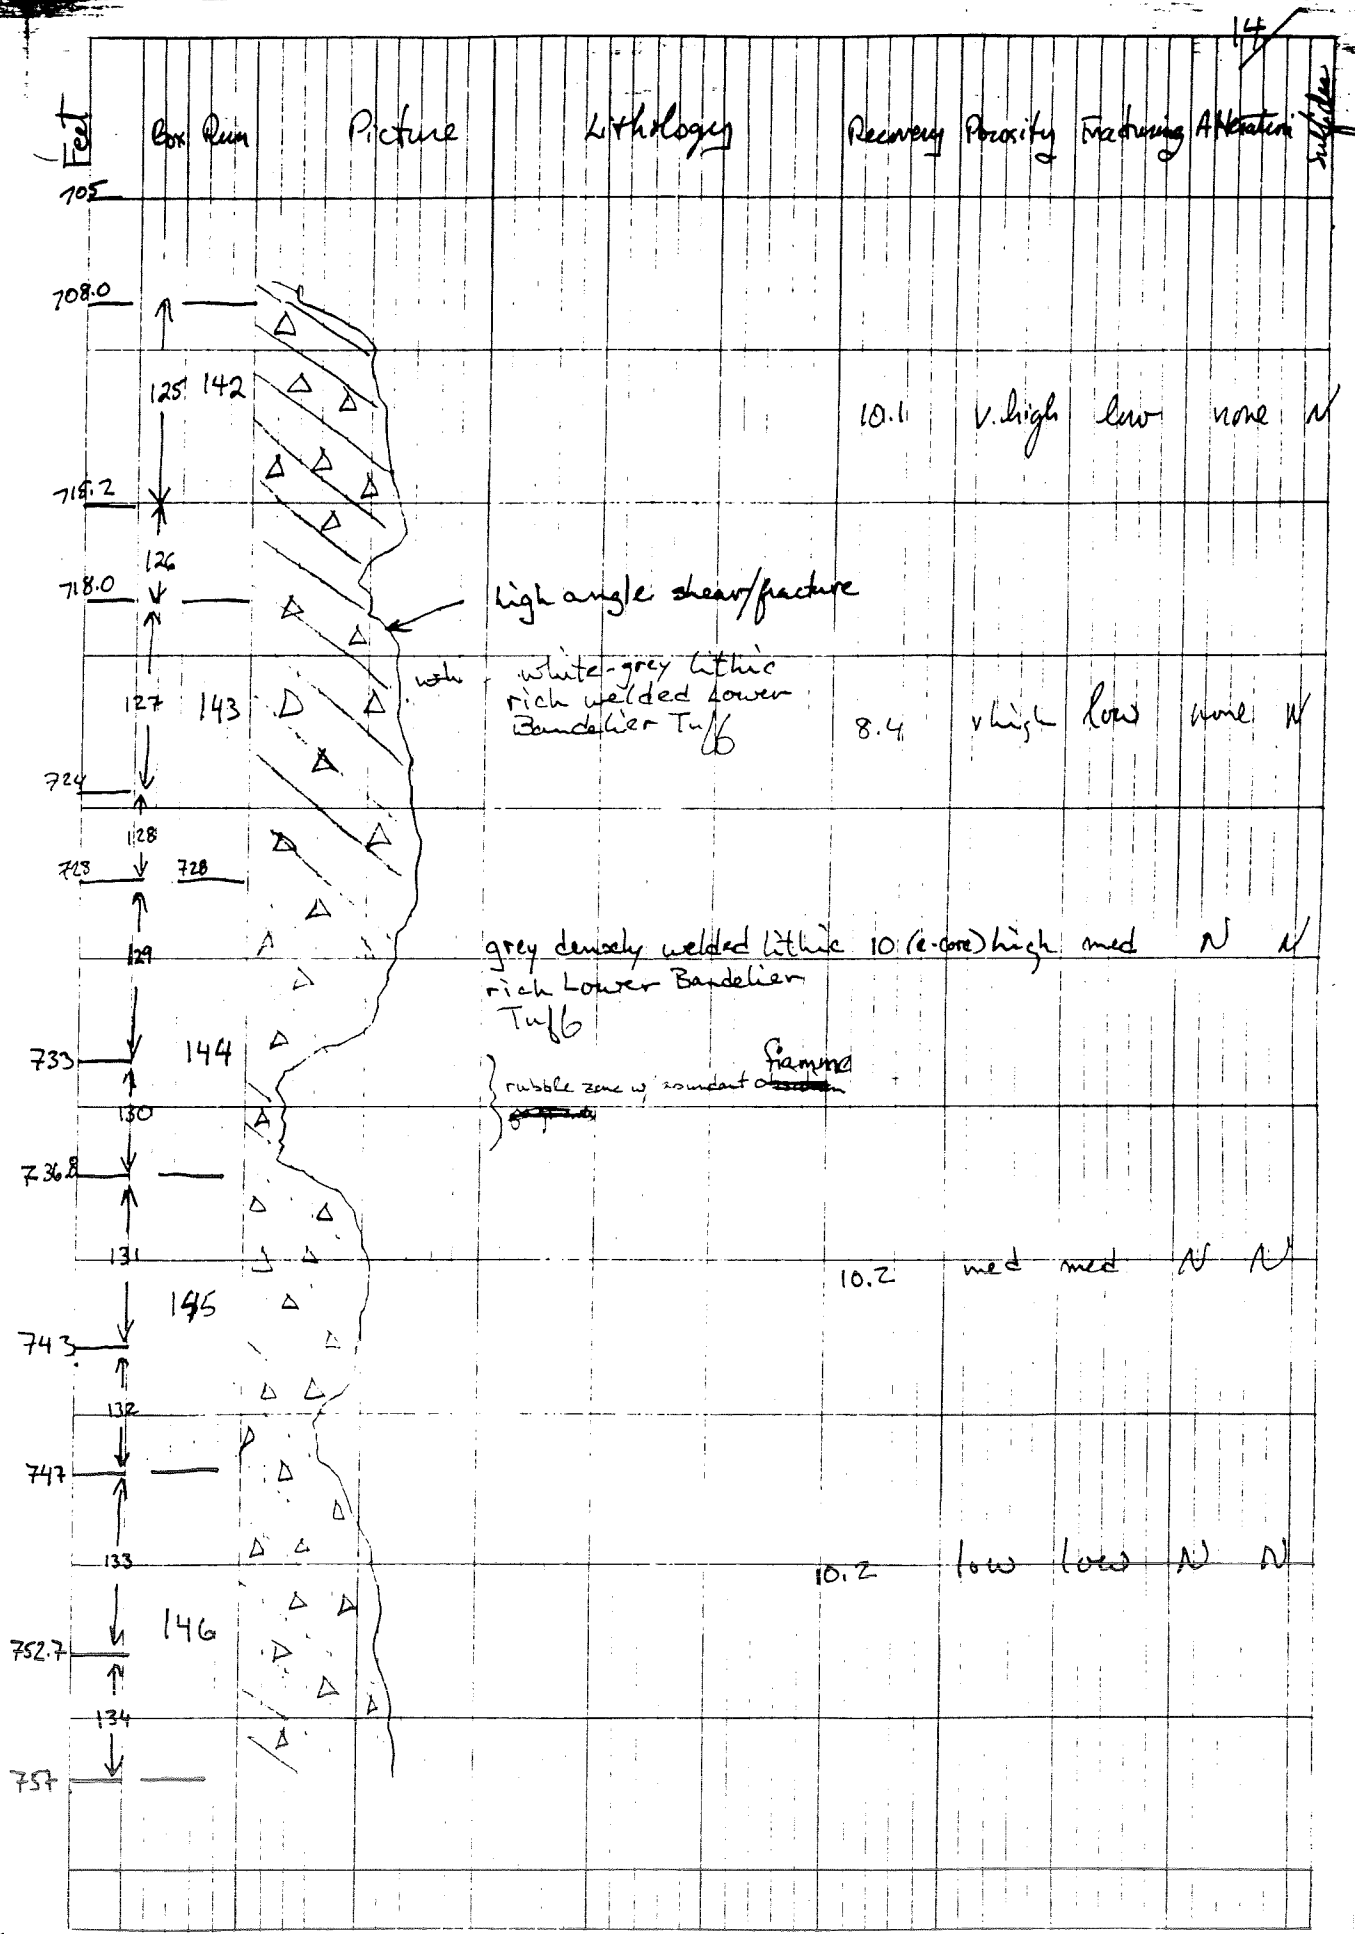 14
Feet Box Run Picture Lithology Recovery Porosity Fracturing Alteration Sulfides
705
708.0
125 142 10.1 v.high low none N
715.2
126
718.0
high angle shear/fracture
wh - white-grey lithic
rich welded Lower
Bandelier Tuff
127 143 8.4 v high low none N
724
128
728 728
129 grey densely welded lithic 10 (e-core) high med N N
rich Lower Bandelier
Tuff
733 144
fiamme
rubble zone w/ abundant
130
736.8
131 10.2 med med N N
145
743
132
747
133 10.2 low low N N
146
752.7
134
757